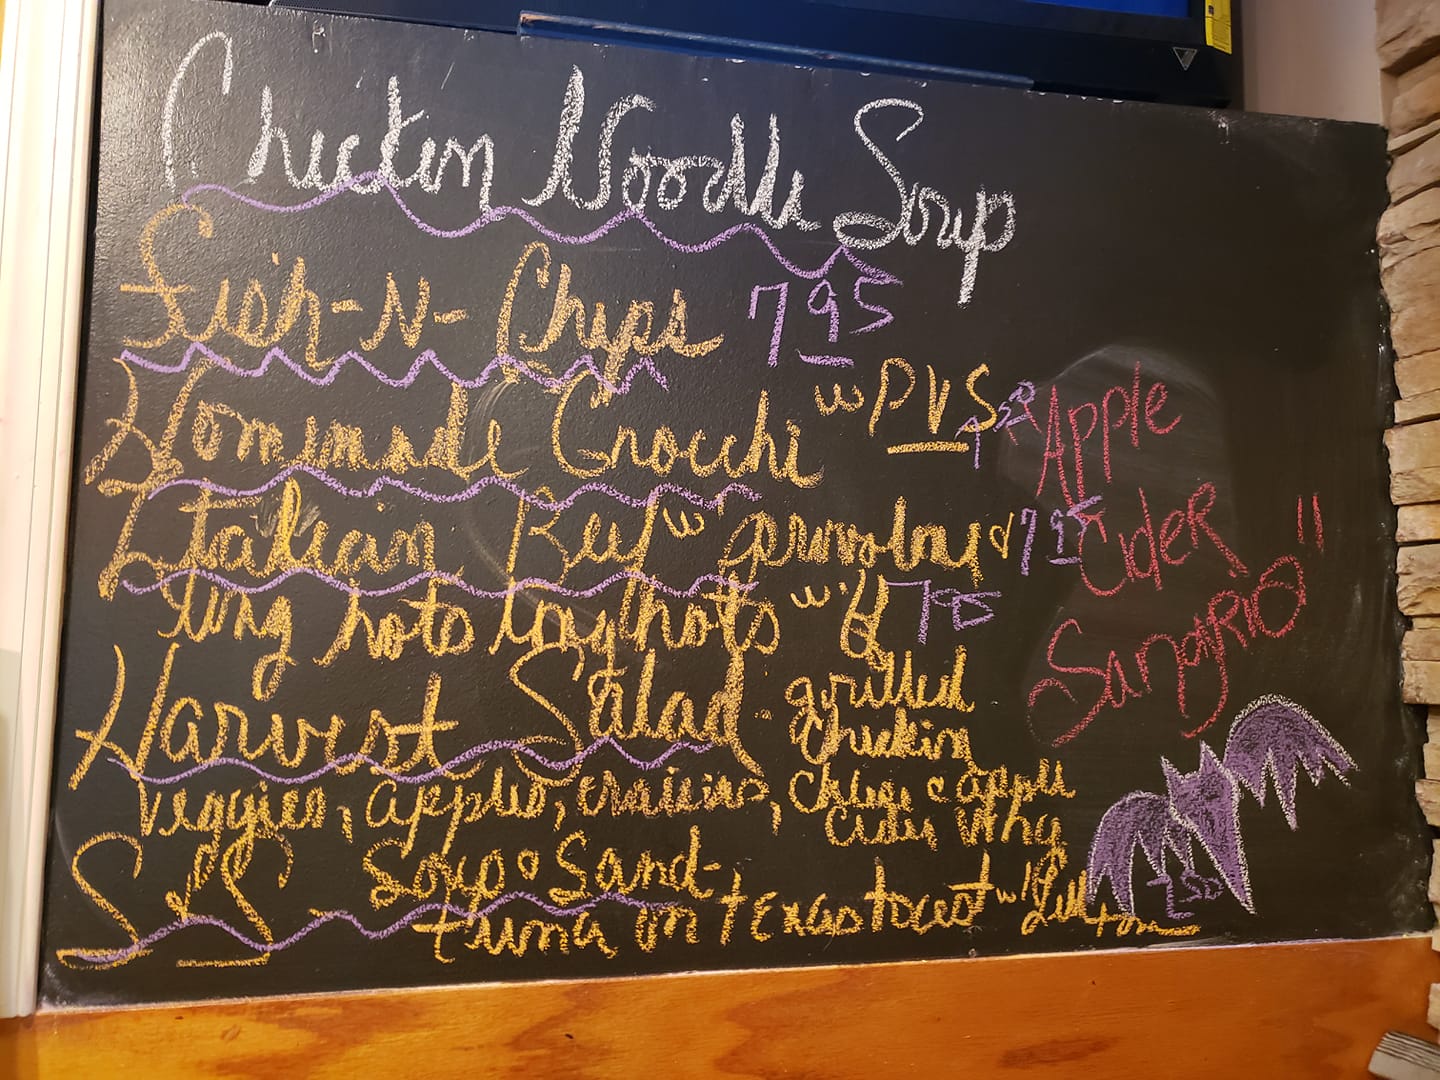 Chicken Noodle Soup
Fish-N-Chips 795
Homemade Gnocchi w PVS
Italian Beef w provolone 795
long hots w 795
Harvest Salad grilled
Chicken
Veggies, apples, craisins, Chz & apple
Cider Vthg
S&S Soup & Sand-
tuna on texas toast w/ Lett
+ tom 750
Apple
Cider
Sangria"